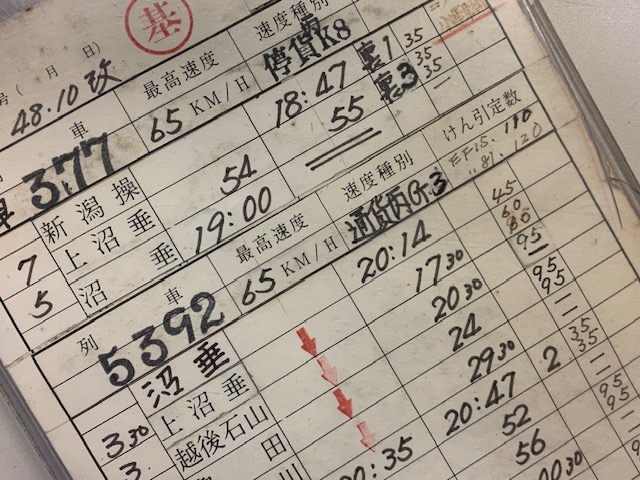 基
速度種別
号( 月 日)
48.10改
最高速度
停貨K8
車
377
65 KM/H
18:47
裏1
35
新潟操
54
55
裏3
35
35
7
上沼垂
19:00
速度種別
けん引定数
EF15.
〃81. 120
5
沼垂
最高速度
通貨丙Gr.3
列
車
5392
65 KM/H
20:14
45
60
沼垂
17 30
95
上沼垂
20 30
95
95
3 30
越後石山
24
3.
田
29 30
2
35
35
川
20:47
52
95
95
56